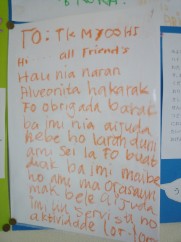 TO: TK MYOOHS
all Friend's
Hi
Hau nia naran
Alveonita hakarak
Fo obrigada barak
ba imi nia aijuda
Bebe ho laran duni
ami sei la Fo buat
ba imi maibe
ho ami ma orasaun
mak bele aijuda
imi servisu ho
aktividade lor-loron